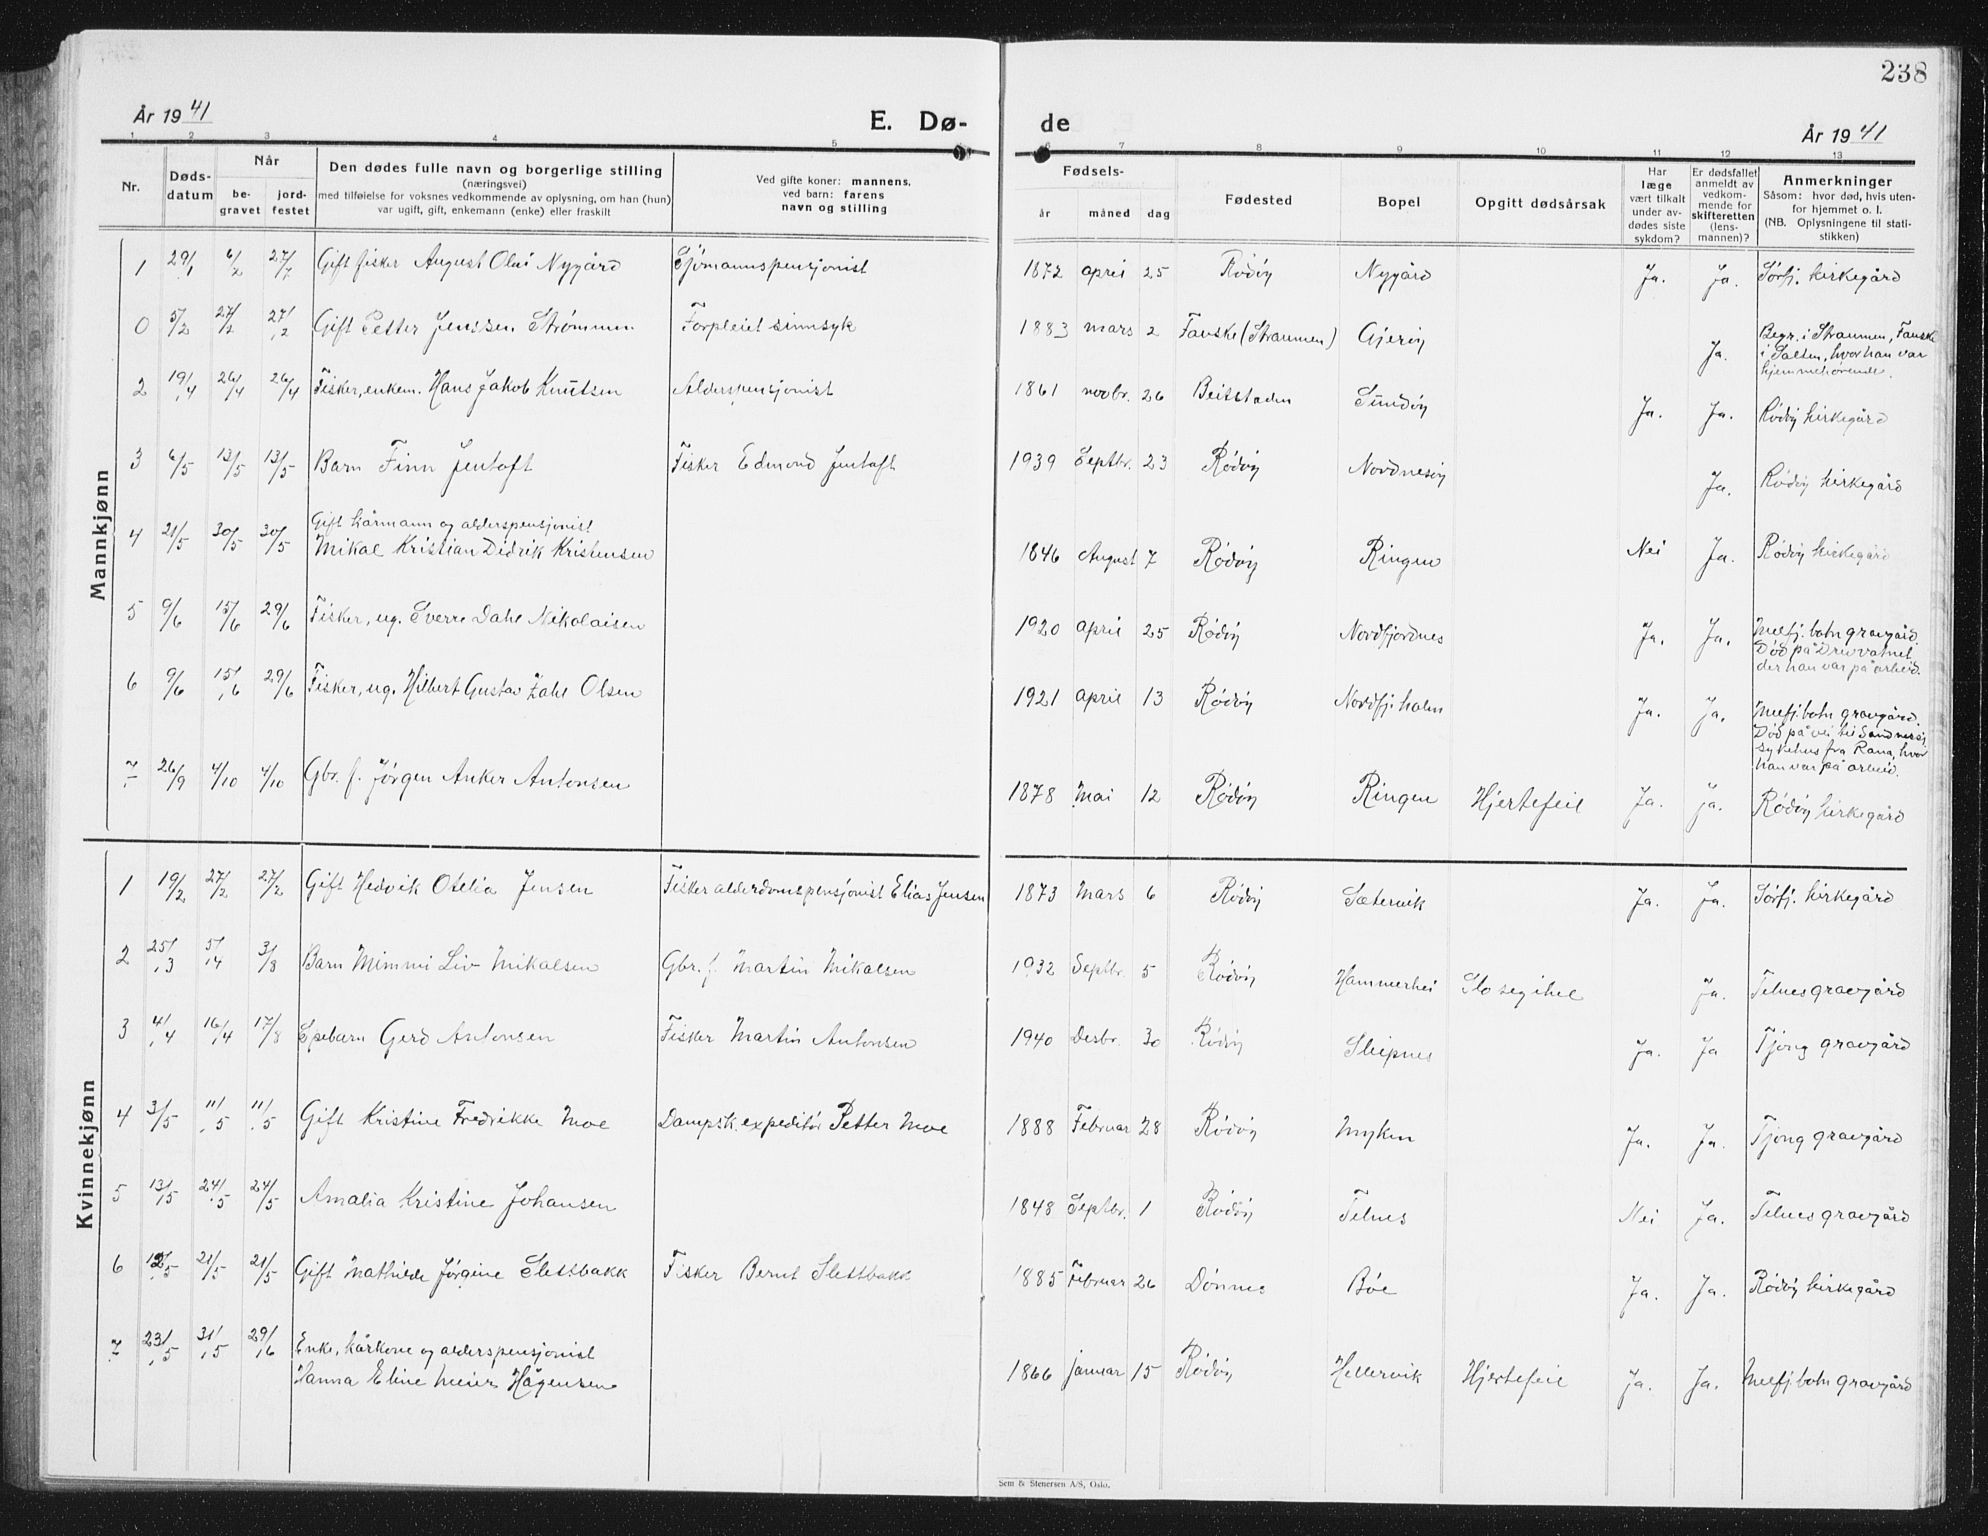 238
År 1941
E. Dø-
de
År 1941
1 2 3 4 5 6 7 8 9 10 11 12 13
Nr.
Døds-
datum
Når
be-
gravet
jord-
festet
Den dødes fulle navn og borgerlige stilling
(næringsvei)
med tilføielse for voksnes vedkommende av oplysning, om han (hun)
var ugift, gift, enkemann (enke) eller fraskilt
Ved gifte koner: mannens,
ved barn: farens
navn og stilling
Fødsels-
år
måned
dag
Fødested
Bopel
Opgitt dødsårsak
Har
læge
vært tilkalt
under av-
dødes siste
sykdom?
Er dødsfallet
anmeldt av
vedkom-
mende for
skifteretten
(lens-
mannen)?
Anmerkninger
Såsom: hvor død, hvis uten-
for hjemmet o. l.
(NB. Oplysningene til stati-
stikken)
Mannkjønn
1 29/1 6/2 27/7 Gift fisker August Olai Nygård Sjømannspensjonist 1872 april 25 Rødøy Nygård Ja. Ja. Sørfj. kirkegård
0 5/2 27/2 27/2 Gift Petter Jenssen Strømmen Forpleiet sinnsyk 1883 mars 2 Fauske (Straumen) Gjerøy Ja.
Begr. i Straumen, Fauske
i Salten, hvor han var
hjemmehørende.
2 19/4 26/4 26/4 Fisker, enkem. Hans Jakob Knutsen Alderspensjonist 1861 novbr. 26 Beitstaden Sundøy Ja. Ja. Rødøy kirkegård
3 6/5 13/5 13/5 Barn Finn Jentoft Fisker Edmond Jentoft 1939 Septbr. 23 Rødøy Nordnesøy Ja. Rødøy kirkegård
Gift kårmann og alderspensjonist
4 21/5 30/5 30/5 Mikal Kristian Didrik Kristensen 1846 August 7 Rødøy Ringen Nei Ja. Rødøy kirkegård
5 9/6 15/6 29/6 Fisker, ug. Sverre Dahl Nikolaisen 1920 april 25 Rødøy Nordfjordnes Ja. Ja. Melfj. botn gravgård.
Død på Drevvatnet
der han var på arbeid.
6 9/6 15/6 29/6 Fisker, ug. Hilbert Gustav Zahl Olsen 1921 april 13 Rødøy Nordfj. holm Ja. Ja. Melfj. botn gravgård.
Død på vei til Sandnessj.
sykehus fra Rana, hvor
han var på arbeid.
7 26/9 4/10 4/10 Gbr. f. Jørgen Anker Antonsen 1878 Mai 12 Rødøy Ringen Hjertefeil Ja. ja. Rødøy kirkegård
Kvinnekjønn
1 19/2 27/2 27/2 Gift Hedvik Otelia Jensen Fisker alderdomspensjonist Elias Jensen 1873 Mars 6 Rødøy Sætervik Ja. Ja. Sørfj. kirkegård
2 25/3 5/4 3/8 Barn Mimmi Liv Mikalsen Gbr. f. Martin Mikalsen 1932 Septbr. 5 Rødøy Hammerhei Slo seg ihel Ja. Telnes gravgård
3 4/4 16/4 17/8 Spebarn Gerd Antonsen Fisker Martin Antonsen 1940 Desbr. 30 Rødøy Sleipnes Ja. Ja Tjong gravgård
4 3/5 11/5 11/5 Gift Kristine Fredrikke Moe Dampsk. expeditør Petter Moe 1888 Februar 28 Rødøy Myken Ja. Ja. Tjong gravgård
5 13/5 24/5 24/5 Amalia Kristine Johansen 1848 Septbr. 1 Rødøy Telnes Nei Ja. Telnes gravgård
6 12/5 21/5 21/5 Gift Mathilde Jørgine Slettbakk Fisker Bernt Slettbakk 1885 Februar 26 Dønnes Bøe Ja. Ja. Rødøy kirkegård
Enke, kårkone og alderspensjonist
7 23/5 31/5 29/6 Hanna Eline Meier Hågensen 1866 januar 15 Rødøy Hellervik Hjertefeil Ja. Ja. Melfj botn gravgård
Sem & Stenersen A/S, Oslo.